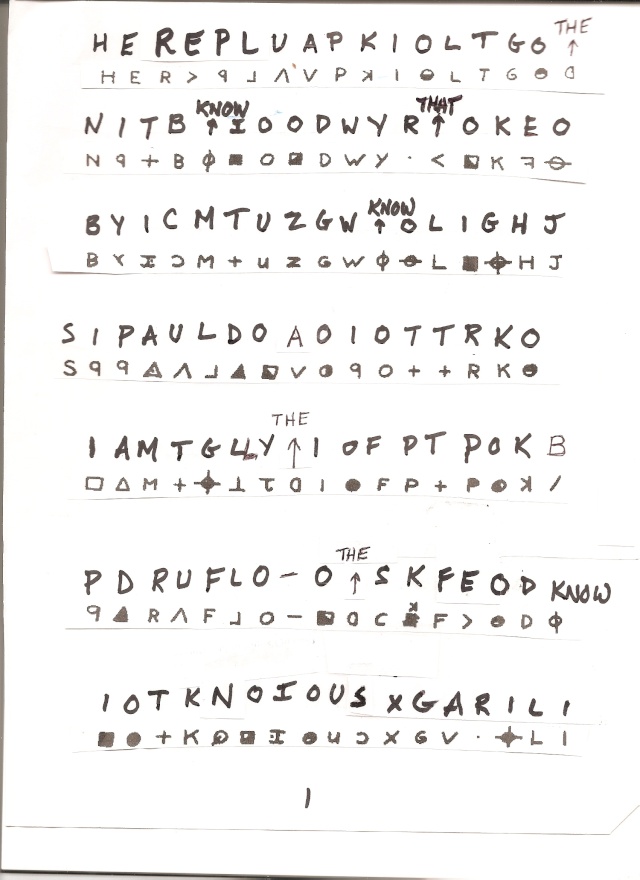 THE
H E R E P L U A P K I O L T G O ↑
H E R > ꟼ ⅃ Λ V P ꓘ I ◒ L T G ● ᗡ
KNOW THAT
N I T B ↑ I O O D W Y R ↑ O K E O
N ꟼ + B ϕ ■ O ◪ D W Y · < ◩ K ꟻ ⊖
KNOW
B Y I C M T U Z G W ↑ O L I G H J
B Y I Ɔ M + U Z G W ϕ ⊖ L ■ ⌖ H J
S I P A U L D O A O I O T T R K O
S ꟼ ꟼ △ Λ ⅃ ▲ ◩ V ◑ ꟼ O + + R K ●
THE
I A M T G L L Y ↑ I O F P T P O K B
□ △ M + ⌖ ⊥ τ ᗡ I ● F P + P ● ꓘ /
THE
P D R U F L O - O ↑ S K F E O D KNOW
ꟼ ▲ R Λ F ⅃ O - ◪ ᗡ C F > ● D ϕ
I O T K N O I O U S X G A R I L I
■ ● + K ◪ I ◒ U Ɔ X G V · ⌖ L I
1